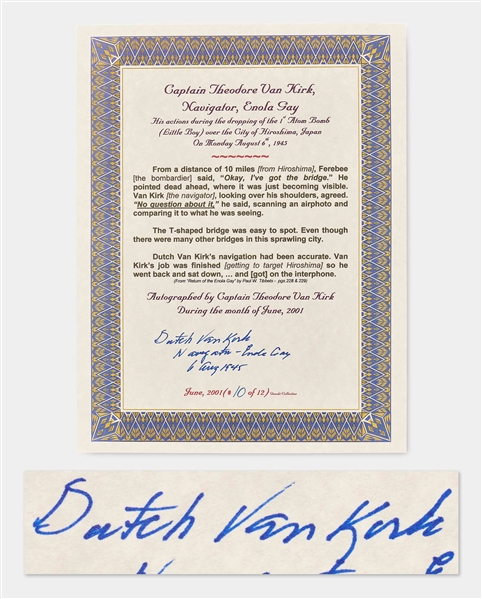 Captain Theodore Van Kirk,
Navigator, Enola Gay
His actions during the dropping of the 1st Atom Bomb
(Little Boy) over the City of Hiroshima, Japan
On Monday August 6th, 1945
From a distance of 10 miles [from Hiroshima], Ferebee
[the bombardier] said, "Okay, I've got the bridge." He
pointed dead ahead, where it was just becoming visible.
Van Kirk [the navigator], looking over his shoulders, agreed.
"No question about it," he said, scanning an airphoto and
comparing it to what he was seeing.
The T-shaped bridge was easy to spot. Even though
there were many other bridges in this sprawling city.
Dutch Van Kirk's navigation had been accurate. Van
Kirk's job was finished [getting to target Hiroshima] so he
went back and sat down, ... and [got] on the interphone.
(From "Return of the Enola Gay" by Paul W. Tibbets - pgs 228 & 229)
Autographed by Captain Theodore Van Kirk
During the month of June, 2001
Dutch Van Kirk
Navigator - Enola Gay
6 Aug 1945
June, 2001 (# 10 of 12) Collection
Dutch Van Kirk